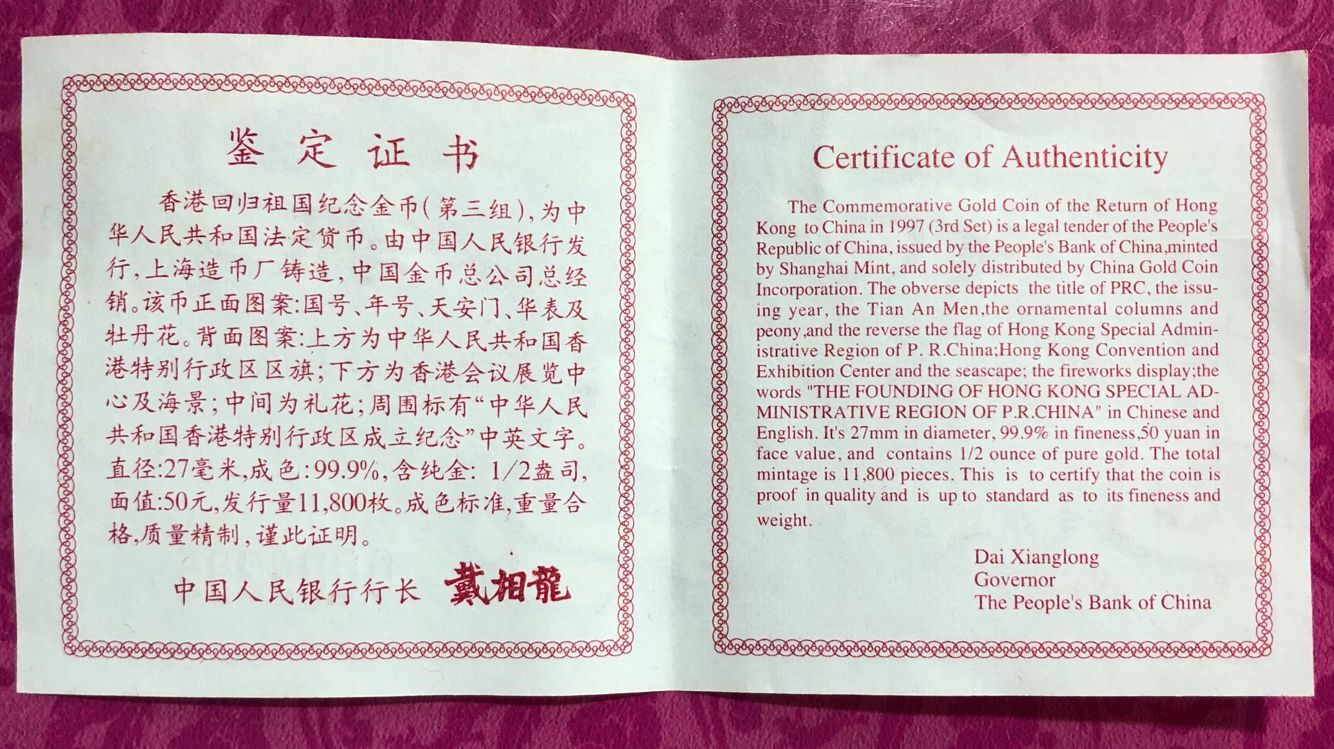 鉴定证书
香港回归祖国纪念金币(第三组),为中
华人民共和国法定货币。由中国人民银行发
行,上海造币厂铸造,中国金币总公司总经
销。该币正面图案:国号、年号、天安门、华表及
牡丹花。背面图案:上方为中华人民共和国香
港特别行政区区旗;下方为香港会议展览中
心及海景;中间为礼花;周围标有“中华人民
共和国香港特别行政区成立纪念”中英文字。
直径:27毫米,成色:99.9%,含纯金: 1/2盎司,
面值:50元,发行量11,800枚。成色标准,重量合
格,质量精制,谨此证明。
中国人民银行行长 戴相龍
Certificate of Authenticity
The Commemorative Gold Coin of the Return of Hong
Kong to China in 1997 (3rd Set) is a legal tender of the People's
Republic of China, issued by the People's Bank of China,minted
by Shanghai Mint, and solely distributed by China Gold Coin
Incorporation. The obverse depicts the title of PRC, the issu-
ing year, the Tian An Men,the ornamental columns and
peony,and the reverse the flag of Hong Kong Special Admin-
istrative Region of P. R.China;Hong Kong Convention and
Exhibition Center and the seascape; the fireworks display;the
words "THE FOUNDING OF HONG KONG SPECIAL AD-
MINISTRATIVE REGION OF P.R.CHINA" in Chinese and
English. It's 27mm in diameter, 99.9% in fineness,50 yuan in
face value, and contains 1/2 ounce of pure gold. The total
mintage is 11,800 pieces. This is to certify that the coin is
proof in quality and is up to standard as to its fineness and
weight.
Dai Xianglong
Governor
The People's Bank of China